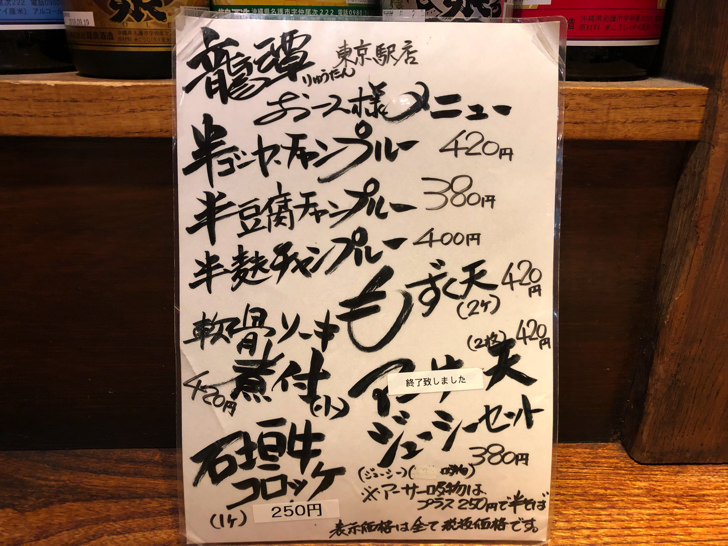 龍潭 東京駅店
りゅうたん
お一人様メニュー
半ゴーヤーチャンプルー 420円
半豆腐チャンプルー 380円
半麩チャンプルー 400円
もずく天 420円
(2ケ)
軟骨ソーキ
煮付(小)
420円
(2枚) 420円
天
終了致しました
ジューシーセット
380円
(ジューシー)(吸物)
石垣牛
コロッケ
(1ケ) 250円
※アーサー吸物は、
プラス250円で半そば
表示価格は全て税抜価格です。